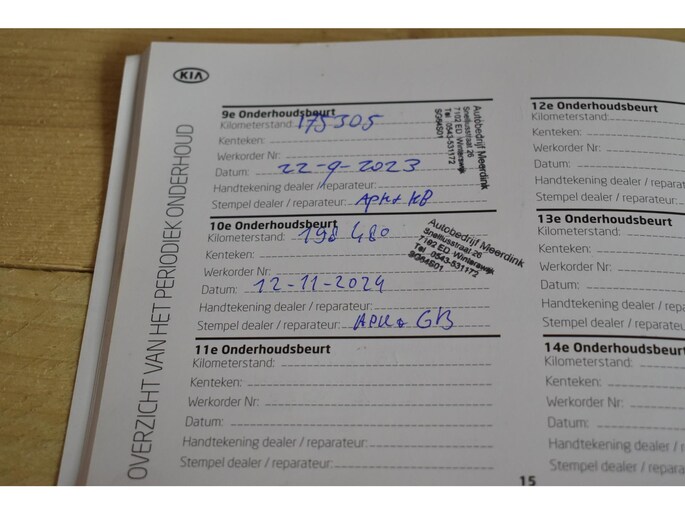 KIA
OVERZICHT VAN HET PERIODIEK ONDERHOUD
9e Onderhoudsbeurt
Kilometerstand: 175305
Kenteken:
Werkorder Nr:
Datum: 22-9-2023
Handtekening dealer / reparateur:
Stempel dealer / reparateur: APK+ KB
Autobedrijf Meerdink
Snelliusstraat 26
7102 ED Winterswijk
Tel. 0543-531172
SG64S01
10e Onderhoudsbeurt
Kilometerstand: 198 480
Kenteken:
Werkorder Nr:
Datum: 12-11-2024
Handtekening dealer / reparateur:
Stempel dealer / reparateur: APK+ GB
Autobedrijf Meerdink
Snelliusstraat 26
7102 ED Winterswijk
Tel. 0543-531172
SG64S01
11e Onderhoudsbeurt
Kilometerstand:
Kenteken:
Werkorder Nr:
Datum:
Handtekening dealer / reparateur:
Stempel dealer / reparateur:
12e Onderhoudsbeurt
Kilometerstand:
Kenteken:
Werkorder Nr:
Datum:
Handtekening dealer / reparat
Stempel dealer / reparate
13e Onderhoudsbeurt
Kilometerstand:
Kenteken:
Werkorder Nr:
Datum:
Handtekening dealer / re
Stempel dealer / reparat
14e Onderhoudsbeurt
Kilometerstand:
Kenteken:
Werkorder Nr:
Datum:
Handtekening dealer / r
Stempel dealer / repara
15